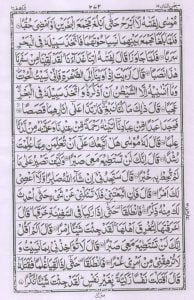 ۲۷۲
مُوْسٰى لِفَتٰىهُ لَاۤ اَبْرَحُ حَتّٰۤى اَبْلُغَ مَجْمَعَ الْبَحْرَيْنِ اَوْ اَمْضِيَ حُقُبًا
فَلَمَّا بَلَغَا مَجْمَعَ بَيْنِهِمَا نَسِيَا حُوْتَهُمَا فَاتَّخَذَ سَبِيْلَهٗ فِي الْبَحْرِ
سَرَبًا فَلَمَّا جَاوَزَا قَالَ لِفَتٰىهُ اٰتِنَا غَدَآءَنَا لَقَدْ لَقِيْنَا مِنْ سَفَرِنَا
هٰذَا نَصَبًا قَالَ اَرَءَيْتَ اِذْ اَوَيْنَاۤ اِلَى الصَّخْرَةِ فَاِنِّيْ نَسِيْتُ الْحُوْتَ
وَمَاۤ اَنْسٰىنِيْهُ اِلَّا الشَّيْطٰنُ اَنْ اَذْكُرَهٗ وَاتَّخَذَ سَبِيْلَهٗ فِي الْبَحْرِ
عَجَبًا قَالَ ذٰلِكَ مَا كُنَّا نَبْغِ فَارْتَدَّا عَلٰۤى اٰثَارِهِمَا قَصَصًا
فَوَجَدَا عَبْدًا مِّنْ عِبَادِنَاۤ اٰتَيْنٰهُ رَحْمَةً مِّنْ عِنْدِنَا وَعَلَّمْنٰهُ مِنْ لَّدُنَّا
عِلْمًا قَالَ لَهٗ مُوْسٰى هَلْ اَتَّبِعُكَ عَلٰۤى اَنْ تُعَلِّمَنِ مِمَّا عُلِّمْتَ
رُشْدًا قَالَ اِنَّكَ لَنْ تَسْتَطِيْعَ مَعِيَ صَبْرًا وَكَيْفَ تَصْبِرُ عَلٰى مَا
لَمْ تُحِطْ بِهٖ خُبْرًا قَالَ سَتَجِدُنِيْۤ اِنْ شَآءَ اللّٰهُ صَابِرًا وَّلَاۤ اَعْصِيْ
لَكَ اَمْرًا قَالَ فَاِنِ اتَّبَعْتَنِيْ فَلَا تَسْـَٔلْنِيْ عَنْ شَيْءٍ حَتّٰۤى اُحْدِثَ
لَكَ مِنْهُ ذِكْرًا فَانْطَلَقَا حَتّٰۤى اِذَا رَكِبَا فِي السَّفِيْنَةِ خَرَقَهَا قَالَ
اَخَرَقْتَهَا لِتُغْرِقَ اَهْلَهَا لَقَدْ جِئْتَ شَيْـًٔا اِمْرًا قَالَ اَلَمْ اَقُلْ
اِنَّكَ لَنْ تَسْتَطِيْعَ مَعِيَ صَبْرًا قَالَ لَا تُؤَاخِذْنِيْ بِمَا نَسِيْتُ وَلَا
تُرْهِقْنِيْ مِنْ اَمْرِيْ عُسْرًا فَانْطَلَقَا حَتّٰۤى اِذَا لَقِيَا غُلٰمًا فَقَتَلَهٗ
قَالَ اَقَتَلْتَ نَفْسًا زَكِيَّةًۢ بِغَيْرِ نَفْسٍ لَقَدْ جِئْتَ شَيْـًٔا نُّكْرًا